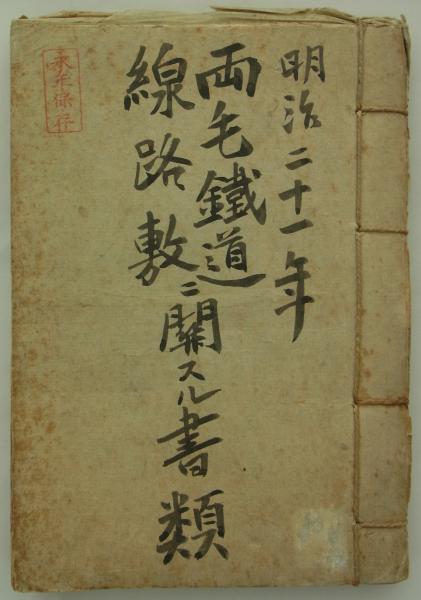 明治二十一年
両毛鐵道
線路敷ニ關スル書類
永年保存